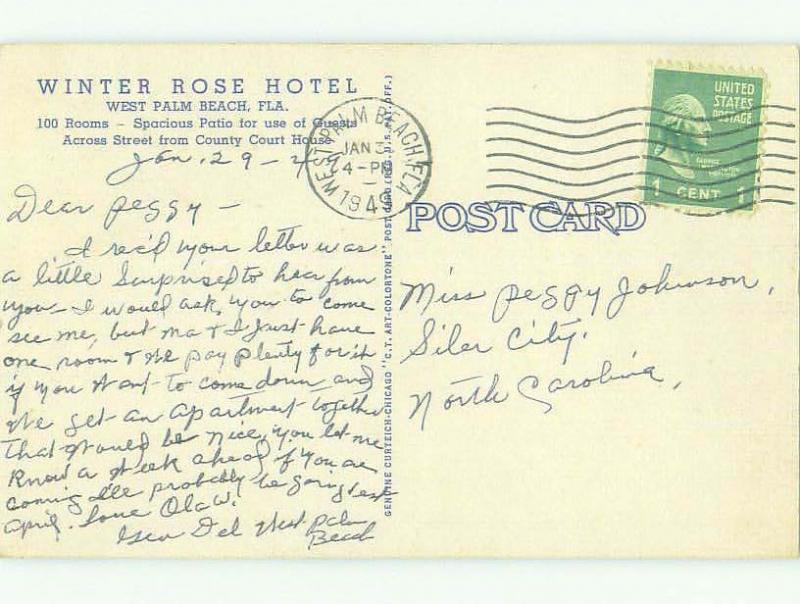 WINTER ROSE HOTEL
WEST PALM BEACH, FLA.
100 Rooms – Spacious Patio for use of Guests
Across Street from County Court House
Jan. 29 - 49
Dear Peggy -
I rec'd your letter was
a little surprised to hear from
you - I would ask you to come
see me, but ma & I just have
one room & we pay plenty for it
if you want to come down and
we get an apartment together
that would be nice, you let me
know a week ahead if you are
coming I'll probably be going
April. Love Ola W.
Gen Del West Palm
Beach
WEST PALM BEACH, FLA
JAN 3
4 - PM
194
UNITED
STATES
POSTAGE
1 CENT 1
POST CARD
Miss Peggy Johnson,
Siler City,
North Carolina,
GENUINE CURTEICH-CHICAGO "C.T. ART-COLORTONE" POST CARD (REG. U.S. PAT. OFF.)